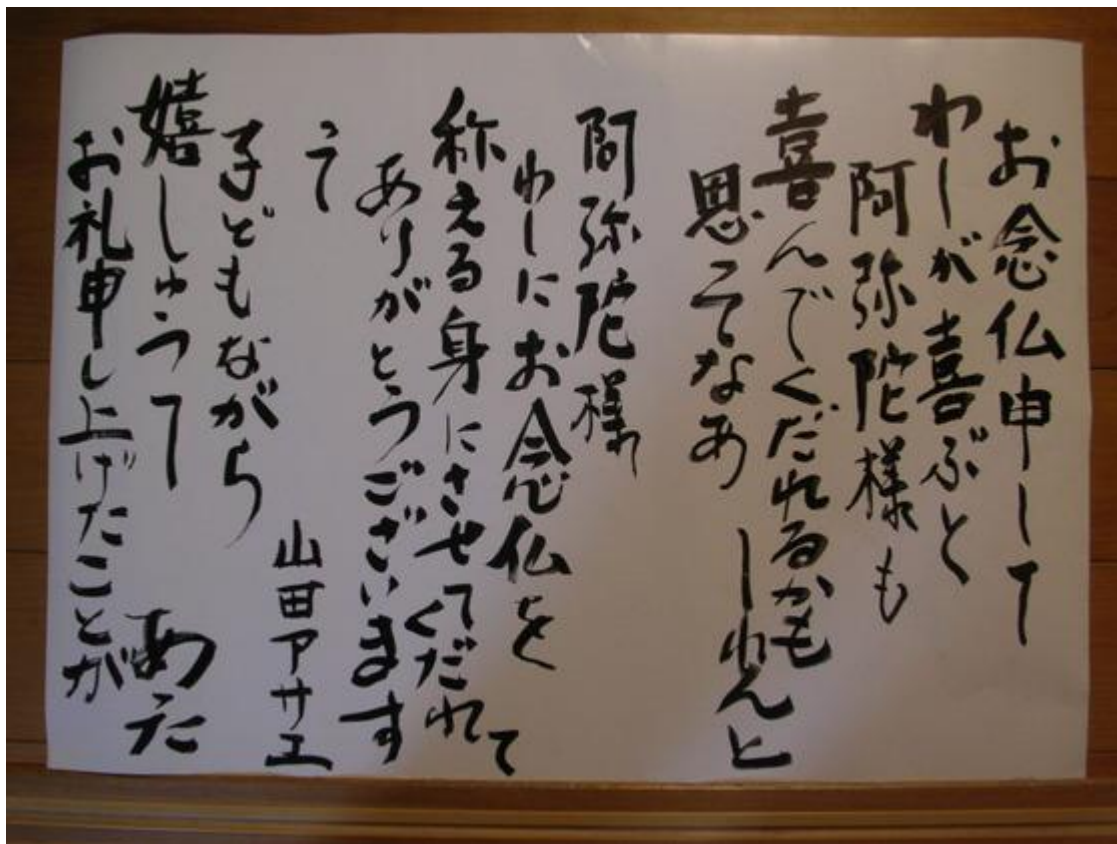 お念仏申して
わしが喜ぶと
阿弥陀様も
喜んでくだれるかも
しれんと
思ってなあ
阿弥陀様
わしにお念仏を
称える身にさせてくだれて
ありがとうございます
って
子どもながら
嬉しゅうて
お礼申し上げたことが
あった
山田アサエ